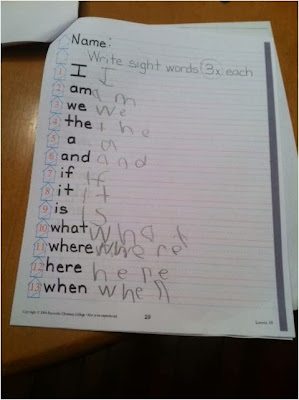 Name:
Write sight words (3x each
1 I I
2 am am
3 we we
4 the the
5 a a
6 and and
7 if if
8 it it
9 is is
10 what what
11 where where
12 here here
13 when when
29
Lesson 10